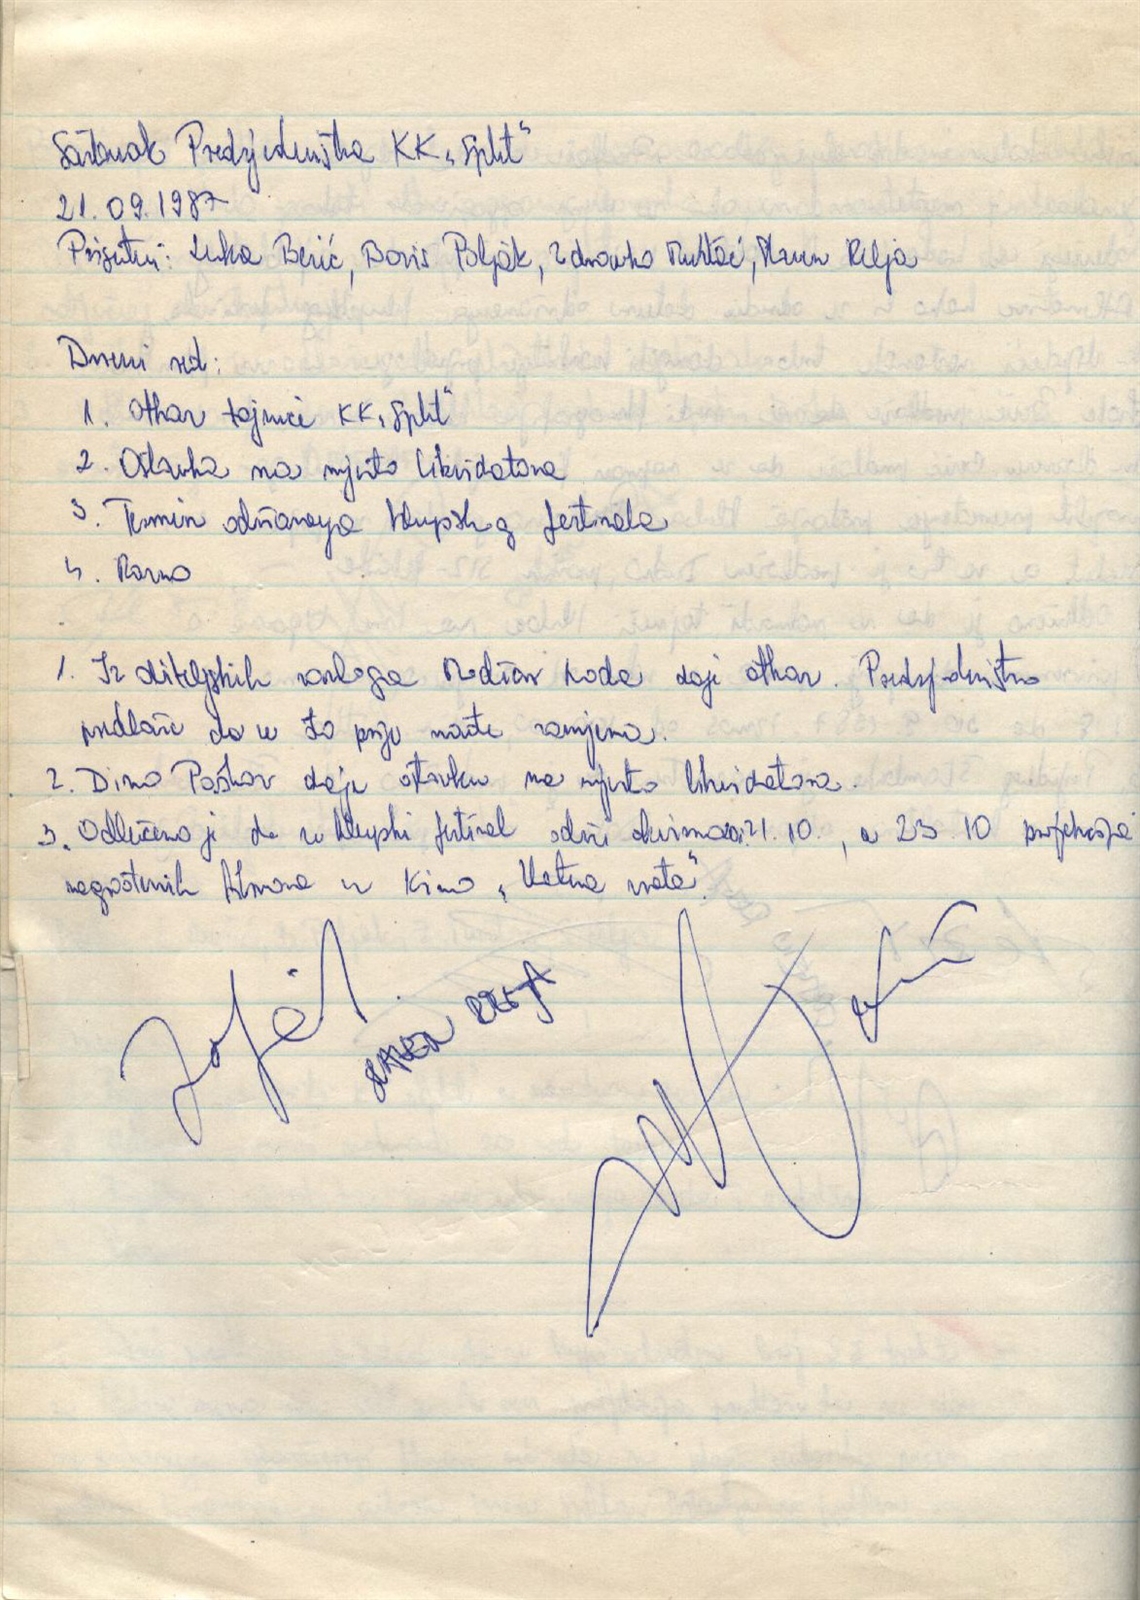 Sastanak Predsjedništva KK „Split“
21.09.1987
Prisutni: Luka Bezić, Boris Poljak, Zdravko Mustać, Slaven Relja
Dnevni red:
1. Otkaz tajnice KK „Split“
2. Ostavka na mjesto likvidatora
3. Termin održavanja klupskog festivala
4. Razno
1. Iz obiteljskih razloga daje otkaz. Predsjedništvo
predlaže da se što prije nađe zamjena.
2. Dino daje ostavku na mjesto likvidatora.
3. Odlučeno je da se klupski festival održi 21.10., a 23.10 projekcija
nagrađenih filmova u Kino „Zlatna vrata“.
SLAVEN RELJA